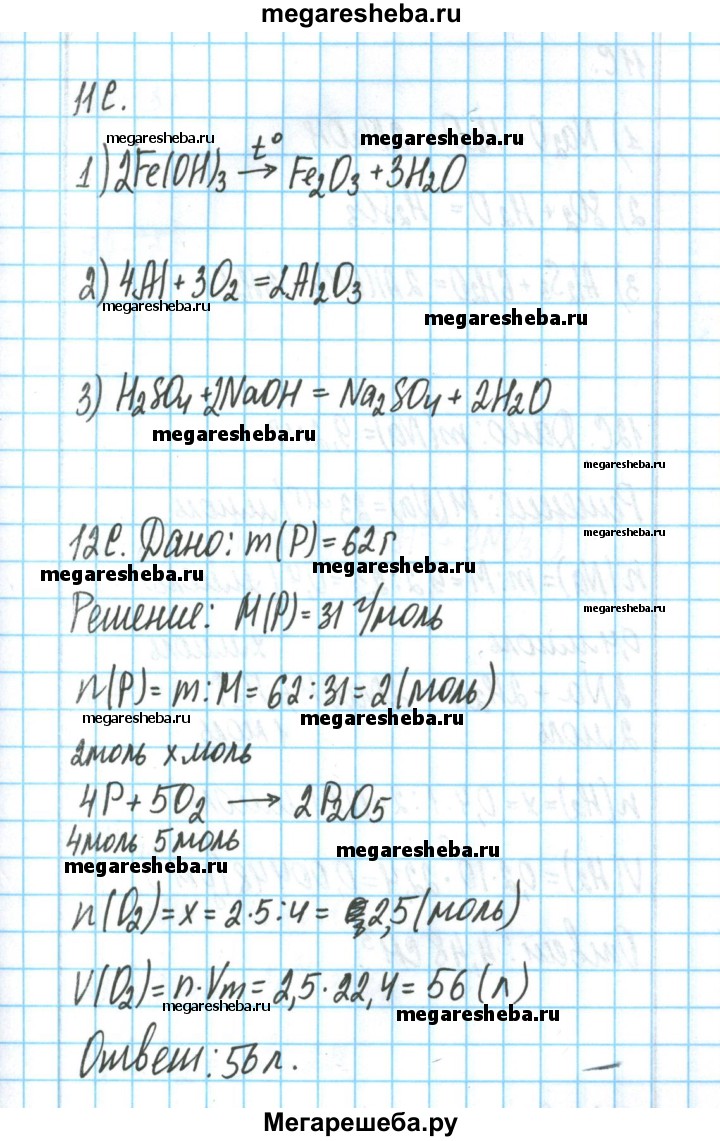 megaresheba.ru
11С.
megaresheba.ru
megaresheba.ru
1) 2Fe(OH)₃ →t° Fe₂O₃ + 3H₂O
2) 4Al + 3O₂ = 2Al₂O₃
megaresheba.ru
megaresheba.ru
3) H₂SO₄ + 2NaOH = Na₂SO₄ + 2H₂O
megaresheba.ru
megaresheba.ru
megaresheba.ru
12С. Дано: m(P) = 62г
megaresheba.ru
megaresheba.ru
Решение: M(P) = 31 г/моль
megaresheba.ru
n(P) = m : M = 62 : 31 = 2 (моль)
megaresheba.ru
megaresheba.ru
2моль x моль
4P + 5O₂ → 2P₂O₅
4моль 5 моль
megaresheba.ru
megaresheba.ru
n(O₂) = x = 2·5:4 = 2,5 (моль)
V(O₂) = n·Vm = 2,5·22,4 = 56 (л)
megaresheba.ru
megaresheba.ru
Ответ: 56 л.
Мегарешеба.ру